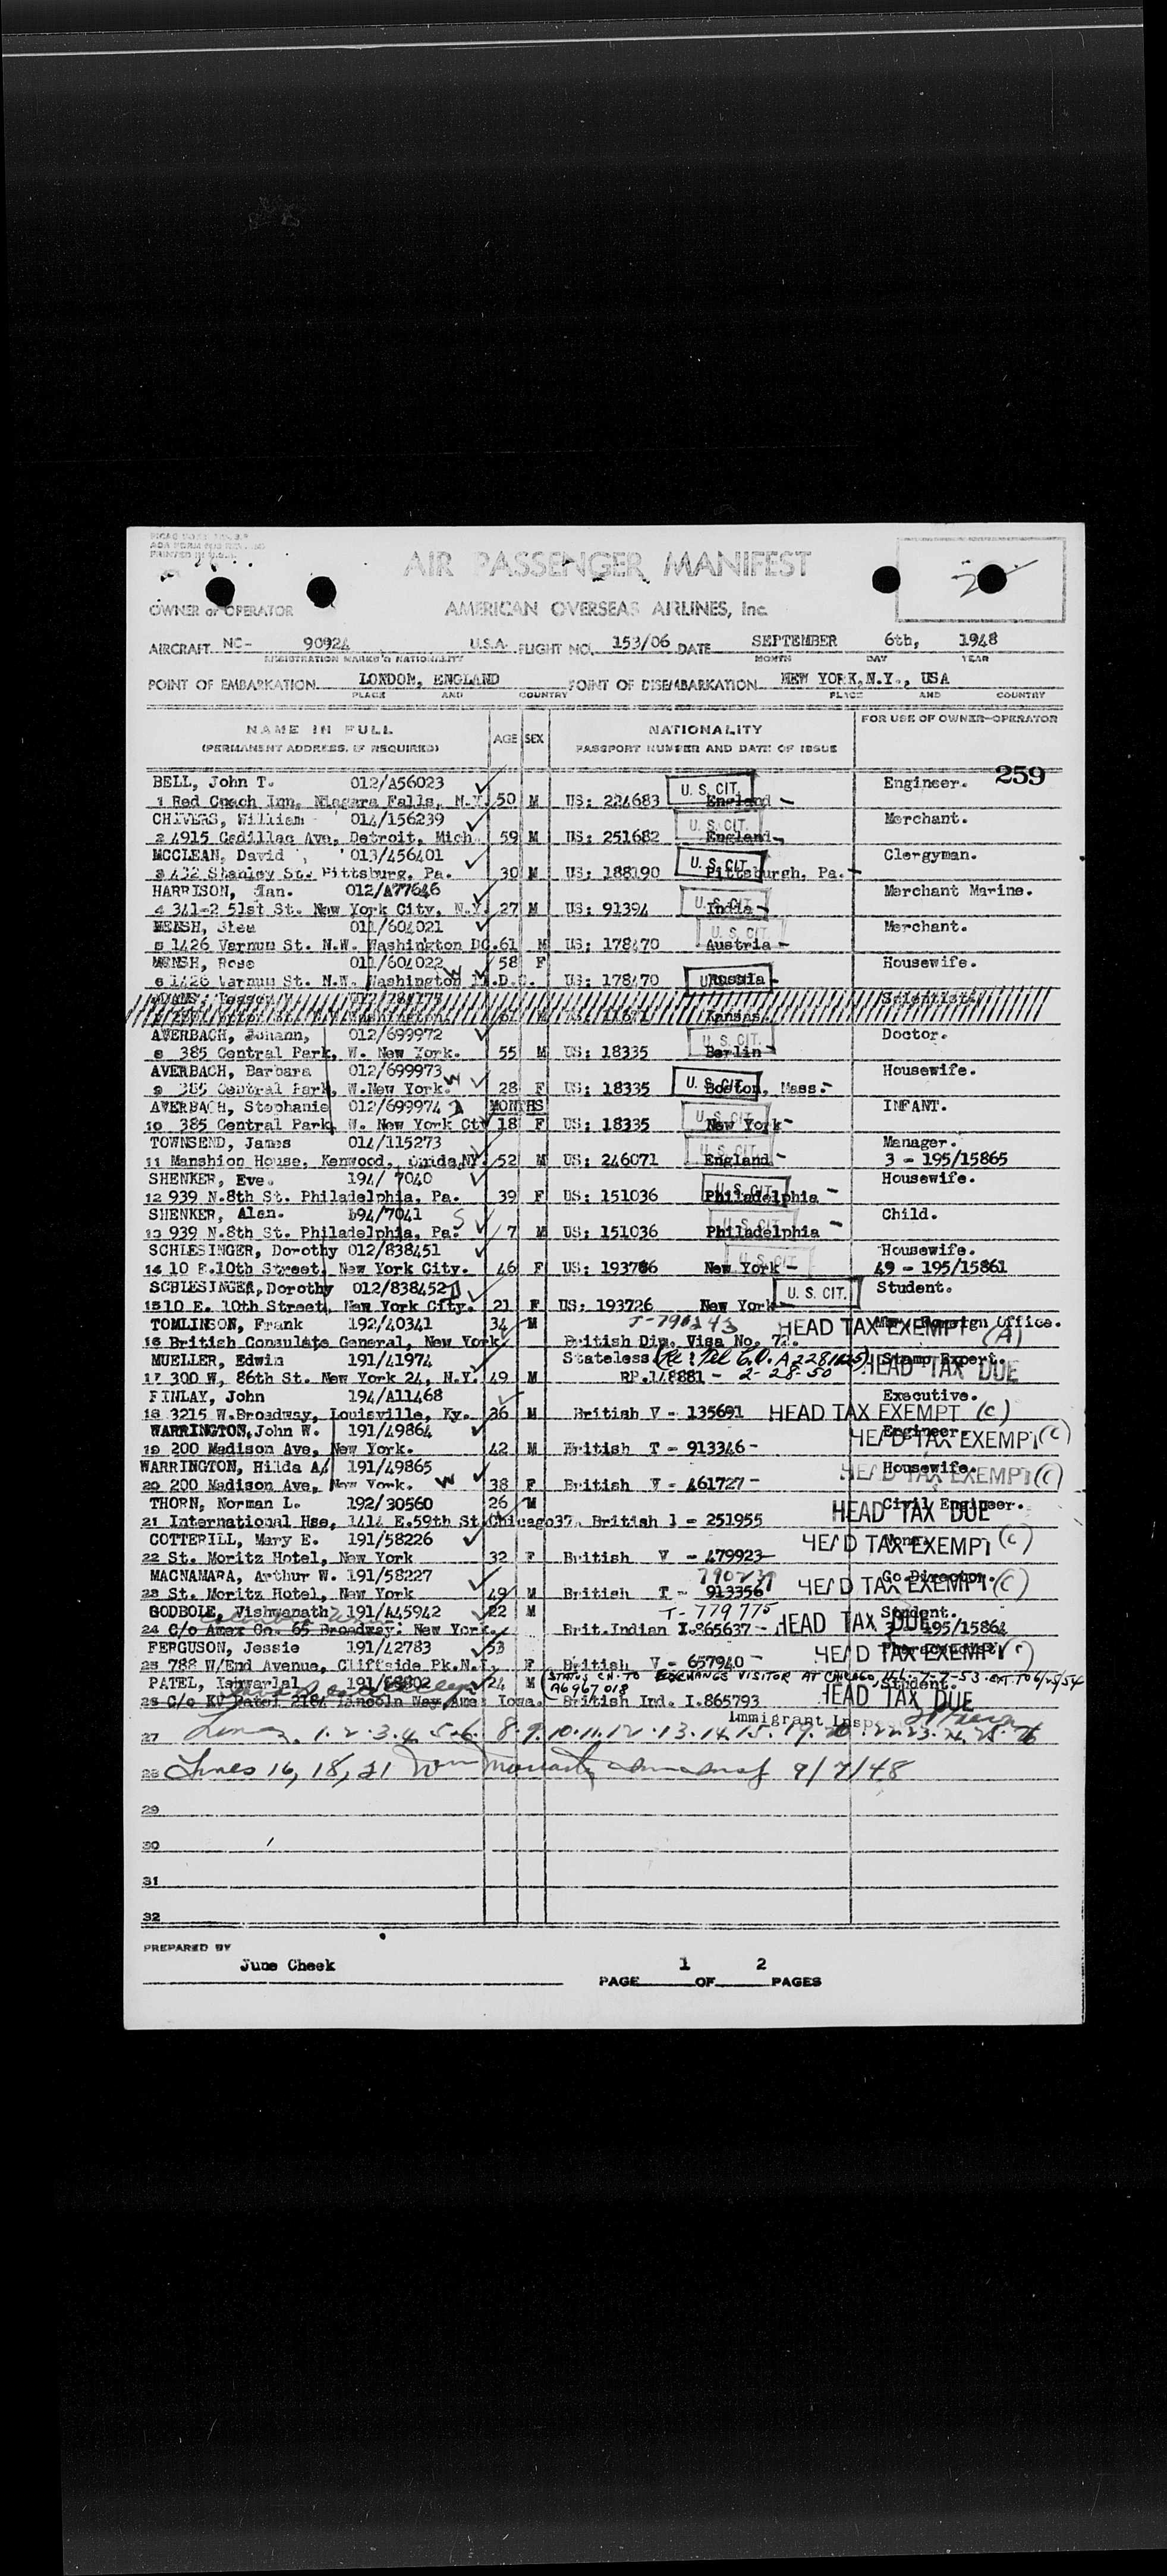 PRINTED IN U.S.A.
AIR PASSENGER MANIFEST
2
OWNER or OPERATOR AMERICAN OVERSEAS AIRLINES, Inc.
AIRCRAFT NC- 90924 U.S.A. FLIGHT NO. 153/06 DATE SEPTEMBER 6th, 1948
REGISTRATION MARKS & NATIONALITY MONTH DAY YEAR
POINT OF EMBARKATION LONDON, ENGLAND POINT OF DISEMBARKATION NEW YORK, N.Y., USA
PLACE AND COUNTRY PLACE AND COUNTRY
NAME IN FULL AGE SEX NATIONALITY FOR USE OF OWNER-OPERATOR
(PERMANENT ADDRESS, IF REQUIRED) PASSPORT NUMBER AND DATE OF ISSUE
259
BELL, John T. 012/A56023 U. S. CIT. Engineer.
1 Red Coach Inn, Niagara Falls, N.Y. 50 M US: 224683 England -
CHIVERS, William 014/156239 U. S. CIT. Merchant.
2 4915 Cadillac Ave, Detroit, Mich. 59 M US: 251682 England -
MCCLEAN, David 013/456401 U. S. CIT. Clergyman.
3 432 Stanley St. Pittsburg, Pa. 30 M US: 188190 Pittsburgh, Pa. -
HARRISON, Ian. 012/A77646 U. S. CIT. Merchant Marine.
4 341-2 51st St. New York City, N.Y. 27 M US: 91394 India -
011/604021 U. S. CIT. Merchant.
5 1426 Varnum St. N.W. Washington DC. 61 M US: 178470 Austria -
Rose 011/604022 W 58 F Housewife.
6 1426 Varnum St. N.W. Washington D.C. US: 178470 Russia -
Scientist.
Kansas.
AVERBACH, Johann, 012/699972 U. S. CIT. Doctor.
8 385 Central Park, W. New York. 55 M US: 18335 Berlin -
AVERBACH, Barbara 012/699973 W U. S. CIT. Housewife.
9 385 Central Park, W. New York. 28 F US: 18335 Boston, Mass. -
AVERBACH, Stephanie 012/699974 MONTHS U. S. CIT. INFANT.
10 385 Central Park, W. New York Cty 18 F US: 18335 New York -
TOWNSEND, James 014/115273 U. S. CIT. Manager.
11 Manshion House, Kenwood, NY. 52 M US: 246071 England - 3 - 195/15865
SHENKER, Eve. 194/ 7040 U. S. CIT. Housewife.
12 939 N.8th St. Philadelphia, Pa. 39 F US: 151036 Philadelphia -
SHENKER, Alan. 194/7041 S U. S. CIT. Child.
13 939 N.8th St. Philadelphia, Pa. 7 M US: 151036 Philadelphia -
SCHLESINGER, Dorothy 012/838451 U. S. CIT. Housewife.
14 10 E.10th Street, New York City. 46 F US: 193726 New York - 49 - 195/15861
SCHLESINGER, Dorothy 012/838452 U. S. CIT. Student.
15 10 E. 10th Street, New York City. 21 F US: 193726 New York
TOMLINSON, Frank 192/40341 34 M HEAD TAX EXEMPT (A) Foreign Office.
16 British Consulate General, New York British Dip. Visa No. 72.
MUELLER, Edwin 191/41974 Stateless HEAD TAX DUE Stamp Expert.
17 300 W, 86th St. New York 24, N.Y. 49 M RP.148881 - 2-28-50
FINLAY, John 194/A11468 Executive.
18 3215 W.Broadway, Louisville, Ky. 36 M British V - 135691 HEAD TAX EXEMPT (C)
WARRINGTON, John W. 191/49864 Engineer. HEAD TAX EXEMPT (C)
19 200 Madison Ave, New York. 42 M British T - 913346 -
WARRINGTON, Hilda A. 191/49865 W Housewife. HEAD TAX EXEMPT (C)
20 200 Madison Ave, New York. 38 F British V - 461727 -
THORN, Norman L. 192/30560 26 M Civil Engineer.
21 International Hse, 1414 E.59th St. Chicago 37. British 1 - 251955 HEAD TAX DUE
COTTERILL, Mary E. 191/58226 HEAD TAX EXEMPT (C)
22 St. Moritz Hotel, New York 32 F British V - 479923
MACNAMARA, Arthur W. 191/58227 790239 Co Director. HEAD TAX EXEMPT (C)
23 St. Moritz Hotel, New York 49 M British T - 913356
GODBOLE, Vishwanath 191/A45942 22 M T-779775 Student.
24 C/o Amex Co. 65 Broadway, New York. Brit.Indian I.865637 - HEAD TAX DUE 3 - 195/15864
FERGUSON, Jessie 191/42783 53 HEAD TAX EXEMPT
25 788 W/End Avenue, Cliffside Pk.N.J. F British V - 657940 -
PATEL, Ishwarlal 24 M (STATUS CH. TO EXCHANGE VISITOR AT CHICAGO, ILL. 7-7-53 EXT. TO 6/25/54 Student.
A6967018 HEAD TAX DUE
26 C/o KV Patel 2184 Lincoln Way, Ames Iowa. British Ind. I.865793
Immigrant Insp.
27 Lines 1.2.3.4.5.6. 8.9.10.11.12.13.14.15.19.20.22.23.24.25.26
28 Lines 16, 18, 21 9/7/48
29
30
31
32
PREPARED BY
June Cheek
PAGE 1 OF 2 PAGES